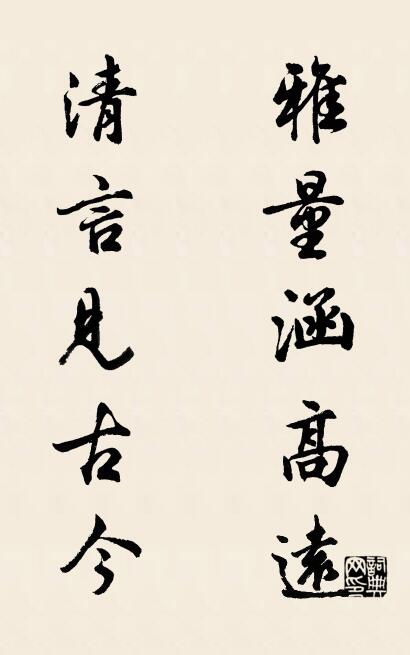 雅量涵高遠
清言見古今
詞典網印